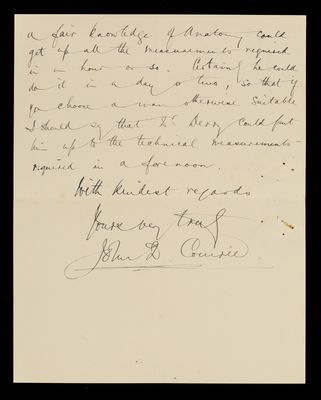 a fair knowledge of Anatomy could
get up all the measurements required
in an hour or so. Certainly he could
do it in a day or two, so that if
you choose a man otherwise suitable
I should say that Dr. Derry could put
him up to the technical measurements
required in a forenoon.
With kindest regards
Yours very truly
John D. Comrie.